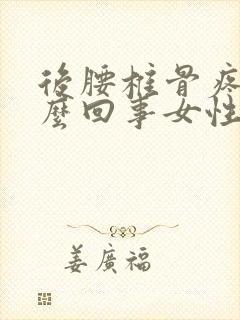 後腰椎骨疼
麼回事女性
姜廣福